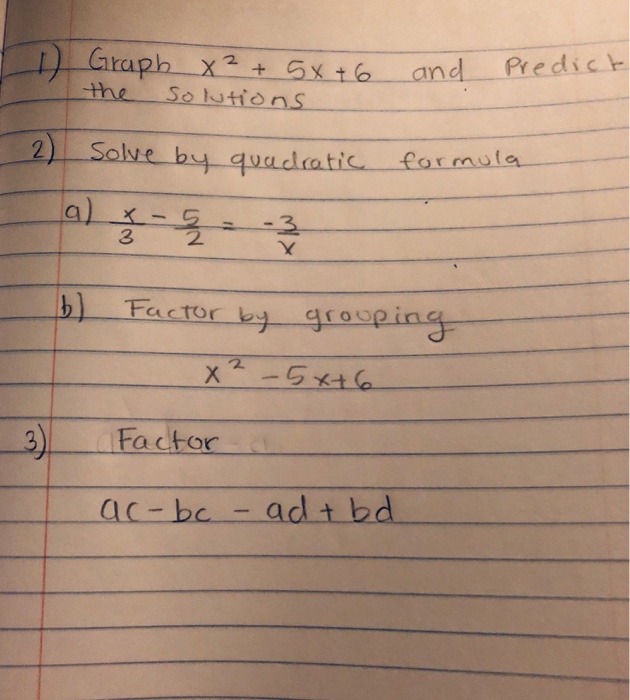 1) Graph x² + 5x + 6 and Predict
the Solutions
2) Solve by quadratic formula
a) x/3 - 5/2 = -3/x
b) Factor by grouping
x² - 5x + 6
3) Factor
ac - bc - ad + bd